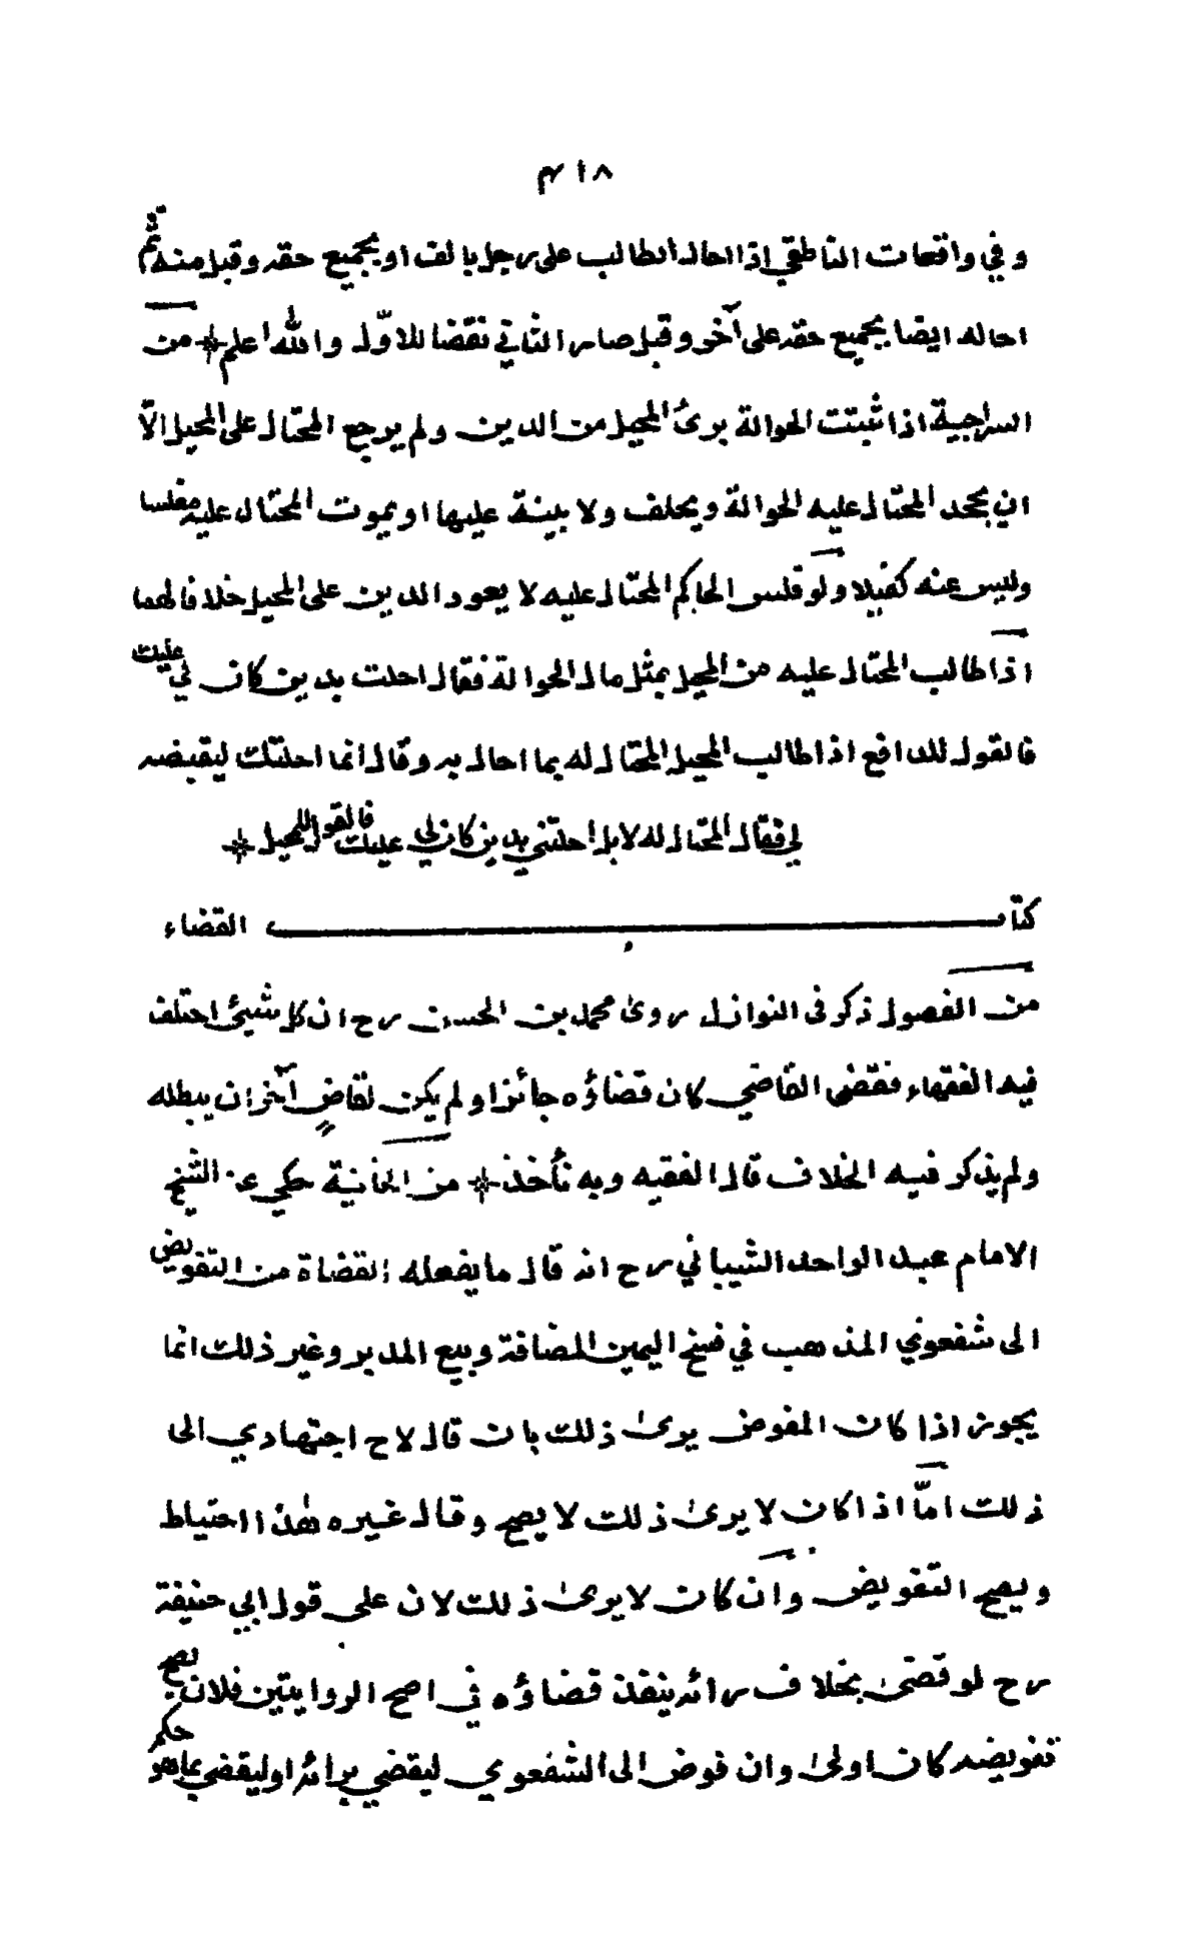 ٣١٨
وفي واقعات الناطقي اذا احال الطالب على رجل بالف او بجميع حقه وقبل منه ثم
احاله ايضا بجميع حقه على آخر وقبل صار الثاني نقضا للاوّل والله اعلم * من
السراجية اذا ثبتت الحوالة برئ المحيل من الدين ولم يرجع المحتال على المحيل الّا
ان يجحد المحتال عليه الحوالة ويحلف ولا بينة عليها او يموت المحتال عليه مفلسا
وليس عنه كفيلا ولو فلس الحاكم المحتال عليه لا يعود الدين على المحيل خلافا لهما
اذا طالب المحتال عليه من المحيل بمثل مال الحوالة فقال احلت بدين كان لي عليك
فالقول للدافع اذا طالب المحيل المحتال له بما احال به وقال انما احلتك ليقبضه
لي فقال المحتال له لا بل احلتني بدين كان لي عليك فالقول للمحيل *
كتاب القضاء
من الفصول ذكر فى النوازل روى محمد بن الحسن رح ان كل شيئ اختلف
فيه الفقهاء فقضى القاضي كان قضاؤه جائزا ولم يكن لقاضٍ آخر ان يبطله
ولم يذكر فيه الخلاف قال الفقيه وبه نأخذ * من الخانية حكي عن الشيخ
الامام عبد الواحد الشيباني رح انه قال ما يفعله القضاة من التفويض
الى شفعوي المذهب في فسخ اليمين المضافة وبيع المدبر وغير ذلك انما
يجوز اذا كان المفوض يرى ذلك بان قال لاح اجتهادي الى
ذلك امّا اذا كان لا يرى ذلك لا يصح وقال غيره هذا احتياط
ويصح التفويض وان كان لا يرى ذلك لان على قول ابي حنيفة
رح لو قضى بخلاف رائه ينفذ قضاؤه في اصح الروايتين فلان يصح
تفويضه كان اولى وان فوض الى الشفعوي ليقضي برائه او ليقضي بما هو حكم